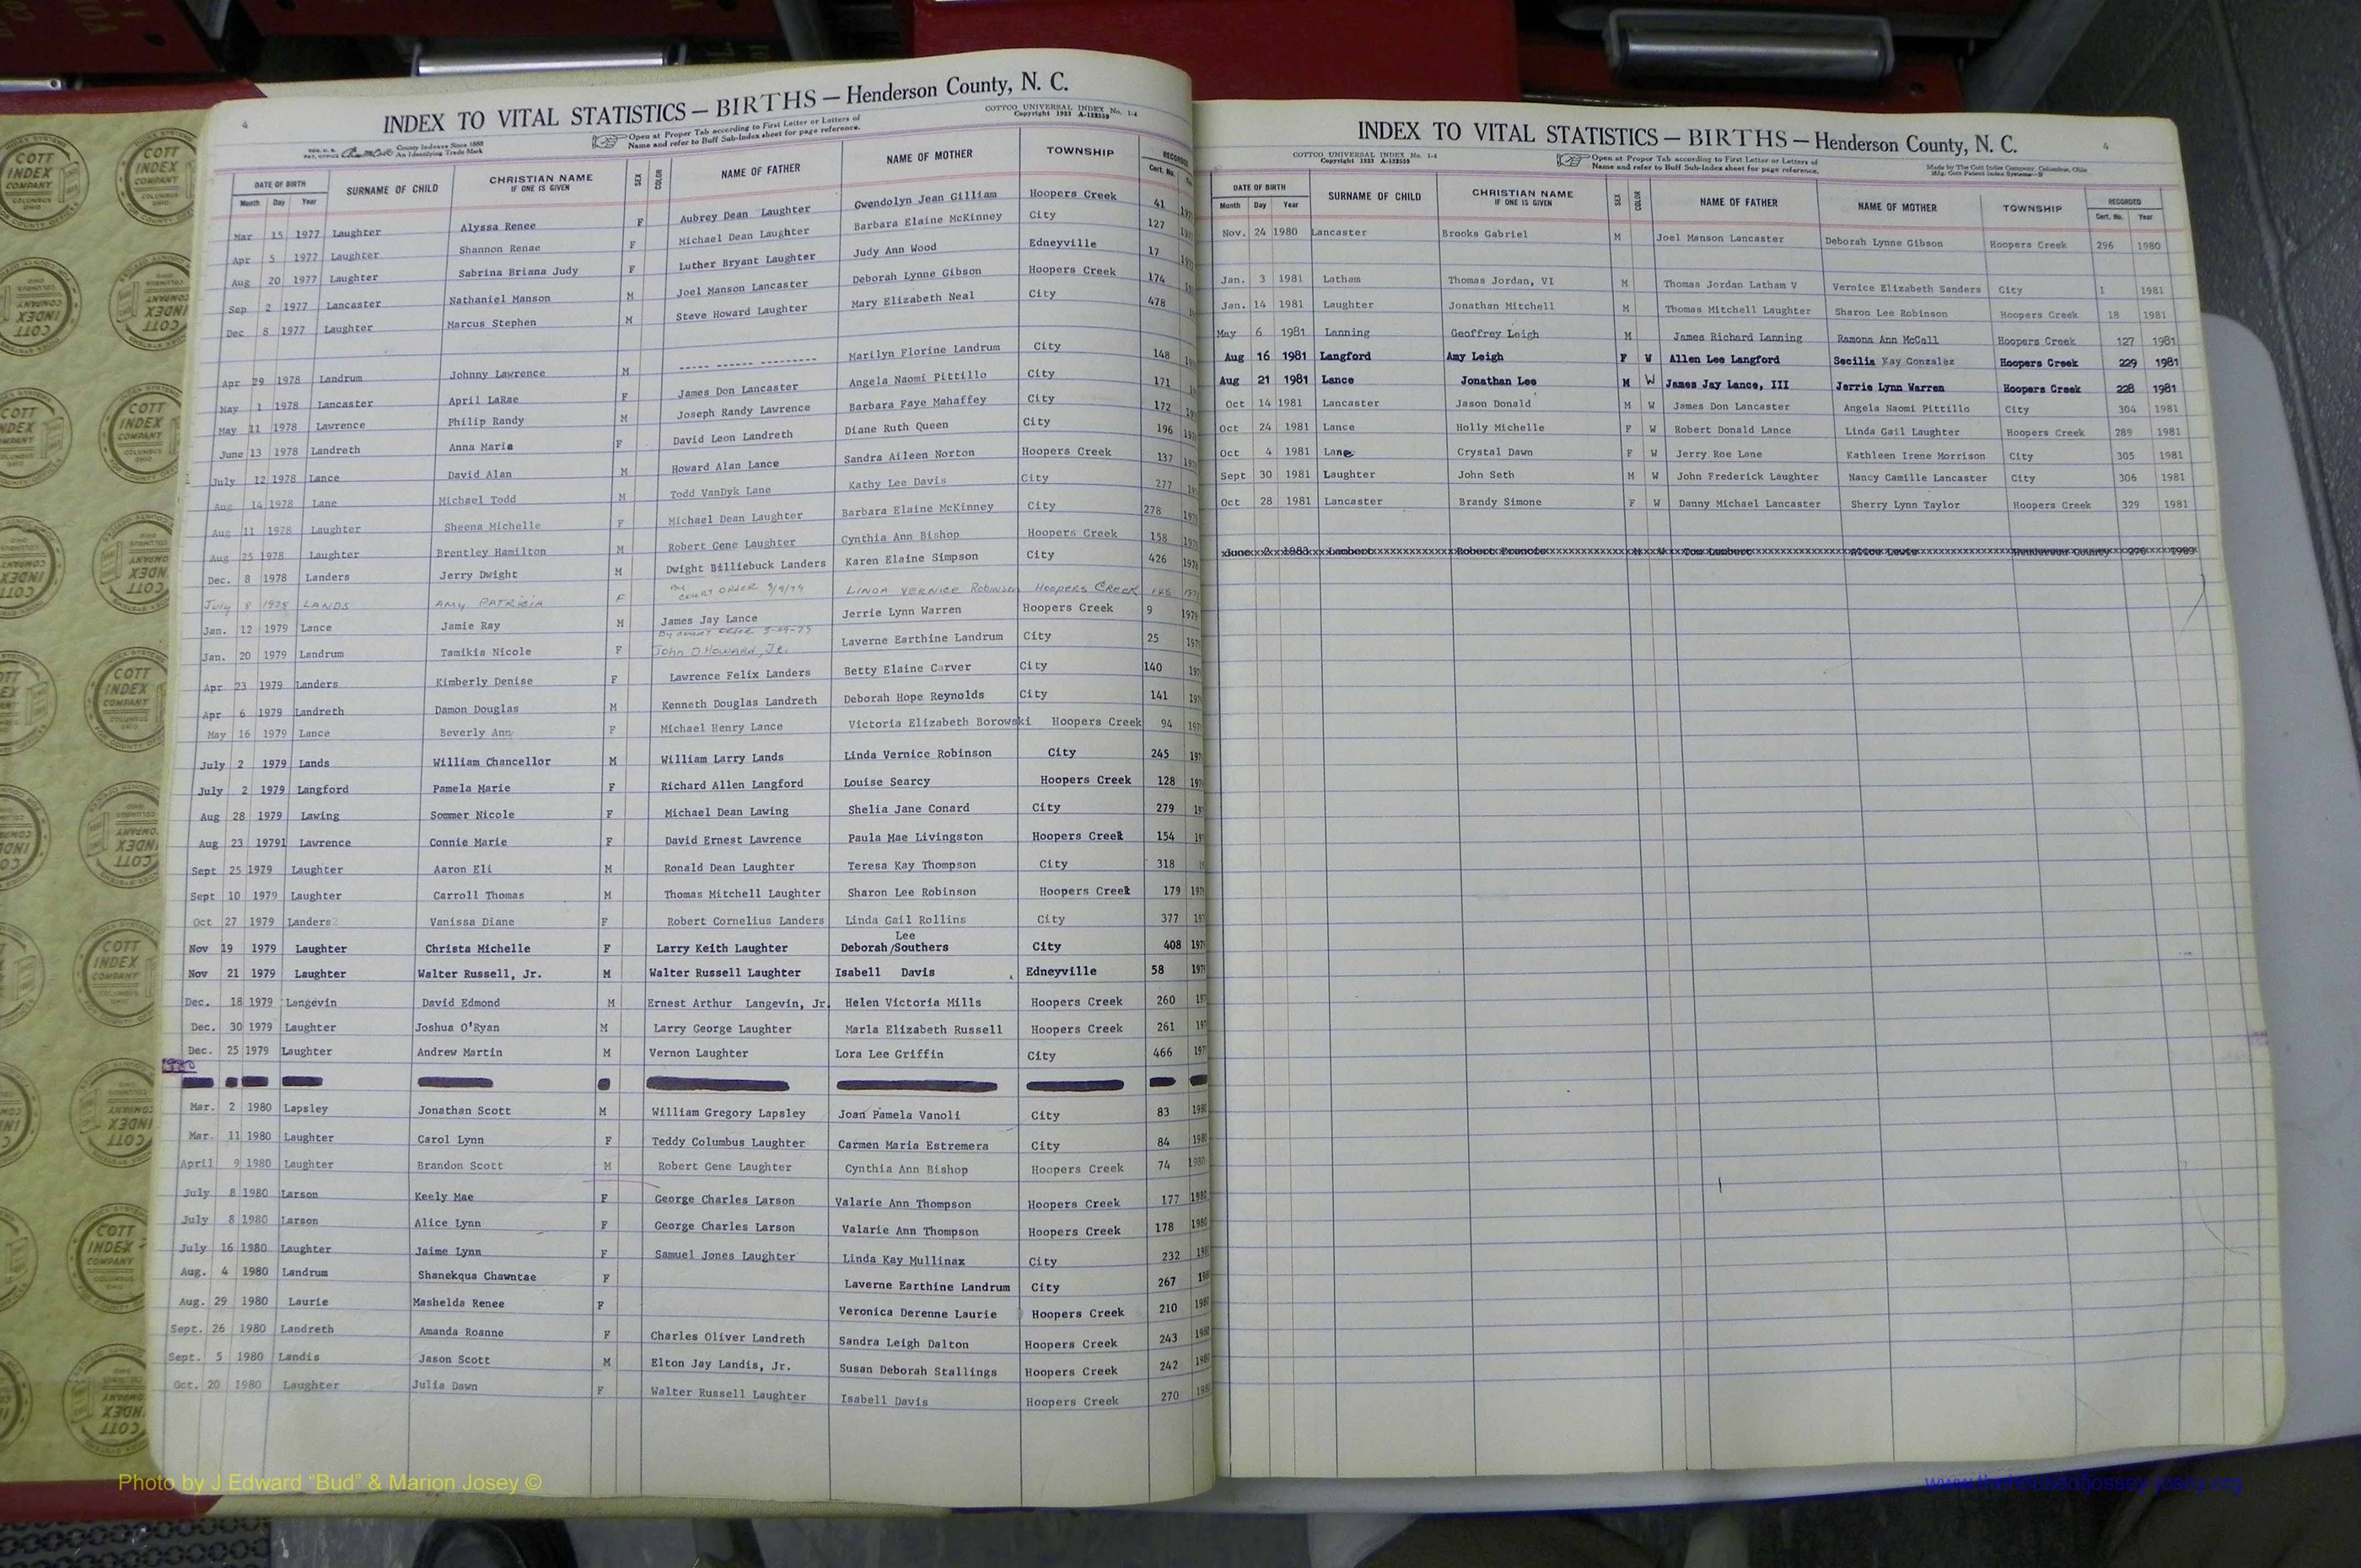 4
INDEX TO VITAL STATISTICS — BIRTHS — Henderson County, N. C.
County Indexes Since 1888
An Identifying Trade Mark
Open at Proper Tab according to First Letter or Letters of
Name and refer to Buff Sub-Index sheet for page reference.
COTTCO UNIVERSAL INDEX No. 1-4
Copyright 1933 A-122559
DATE OF BIRTH SURNAME OF CHILD CHRISTIAN NAME IF ONE IS GIVEN SEX COLOR NAME OF FATHER NAME OF MOTHER TOWNSHIP RECORDED
Month Day Year Cert. No.
Mar 15 1977 Laughter Alyssa Renee F Aubrey Dean Laughter Gwendolyn Jean Gilliam Hoopers Creek 41
Apr 5 1977 Laughter Shannon Renae F Michael Dean Laughter Barbara Elaine McKinney City 127
Aug 20 1977 Laughter Sabrina Briana Judy F Luther Bryant Laughter Judy Ann Wood Edneyville 17
Sep 2 1977 Lancaster Nathaniel Manson M Joel Manson Lancaster Deborah Lynne Gibson Hoopers Creek 174
Dec 8 1977 Laughter Marcus Stephen M Steve Howard Laughter Mary Elizabeth Neal City 478
Apr 29 1978 Landrum Johnny Lawrence M ----- ------ --------- Marilyn Florine Landrum City 148
May 1 1978 Lancaster April LaRae F James Don Lancaster Angela Naomi Pittillo City 171
May 11 1978 Lawrence Philip Randy M Joseph Randy Lawrence Barbara Faye Mahaffey City 172
June 13 1978 Landreth Anna Maria F David Leon Landreth Diane Ruth Queen City 196
July 12 1978 Lance David Alan M Howard Alan Lance Sandra Aileen Norton Hoopers Creek 137
Aug 14 1978 Lane Michael Todd M Todd VanDyk Lane Kathy Lee Davis City 277
Aug 11 1978 Laughter Sheena Michelle F Michael Dean Laughter Barbara Elaine McKinney City 278
Aug 25 1978 Laughter Brentley Hamilton M Robert Gene Laughter Cynthia Ann Bishop Hoopers Creek 158
Dec. 8 1978 Landers Jerry Dwight M Dwight Billiebuck Landers Karen Elaine Simpson City 426 1978
July 8 1978 LANDS AMY PATRICIA F By COURT ORDER 3/9/79 LINDA VERNICE Robinson Hoopers Creek 145
Jan. 12 1979 Lance Jamie Ray M James Jay Lance Jerrie Lynn Warren Hoopers Creek 9 1979
Jan. 20 1979 Landrum Tamikia Nicole F By court Order 5-29-79 John D Howard, Jr. Laverne Earthine Landrum City 25
Apr 23 1979 Landers Kimberly Denise F Lawrence Felix Landers Betty Elaine Carver City 140
Apr 6 1979 Landreth Damon Douglas M Kenneth Douglas Landreth Deborah Hope Reynolds City 141
May 16 1979 Lance Beverly Ann F Michael Henry Lance Victoria Elizabeth Borowski Hoopers Creek 94
July 2 1979 Lands William Chancellor M William Larry Lands Linda Vernice Robinson City 245
July 2 1979 Langford Pamela Marie F Richard Allen Langford Louise Searcy Hoopers Creek 128
Aug 28 1979 Lawing Sommer Nicole F Michael Dean Lawing Shelia Jane Conard City 279
Aug 23 19791 Lawrence Connie Marie F David Ernest Lawrence Paula Mae Livingston Hoopers Creek 154
Sept 25 1979 Laughter Aaron Eli M Ronald Dean Laughter Teresa Kay Thompson City 318
Sept 10 1979 Laughter Carroll Thomas M Thomas Mitchell Laughter Sharon Lee Robinson Hoopers Creek 179
Oct 27 1979 Landers Vanissa Diane F Robert Cornelius Landers Linda Gail Rollins City 377
Nov 19 1979 Laughter Christa Michelle F Larry Keith Laughter Deborah /Lee Southers City 408
Nov 21 1979 Laughter Walter Russell, Jr. M Walter Russell Laughter Isabell Davis Edneyville 58
Dec. 18 1979 Langevin David Edmond M Ernest Arthur Langevin, Jr. Helen Victoria Mills Hoopers Creek 260
Dec. 30 1979 Laughter Joshua O'Ryan M Larry George Laughter Marla Elizabeth Russell Hoopers Creek 261
Dec. 25 1979 Laughter Andrew Martin M Vernon Laughter Lora Lee Griffin City 466
Mar. 2 1980 Lapsley Jonathan Scott M William Gregory Lapsley Joan Pamela Vanoli City 83 1980
Mar. 11 1980 Laughter Carol Lynn F Teddy Columbus Laughter Carmen Maria Estremera City 84 1980
April 9 1980 Laughter Brandon Scott M Robert Gene Laughter Cynthia Ann Bishop Hoopers Creek 74 1980
July 8 1980 Larson Keely Mae F George Charles Larson Valarie Ann Thompson Hoopers Creek 177 1980
July 8 1980 Larson Alice Lynn F George Charles Larson Valarie Ann Thompson Hoopers Creek 178 1980
July 16 1980 Laughter Jaime Lynn F Samuel Jones Laughter Linda Kay Mullinax City 232
Aug. 4 1980 Landrum Shanekqua Chawntae F Laverne Earthine Landrum City 267
Aug. 29 1980 Laurie Mashelda Renee F Veronica Derenne Laurie Hoopers Creek 210 1980
Sept. 26 1980 Landreth Amanda Roanne F Charles Oliver Landreth Sandra Leigh Dalton Hoopers Creek 243 1980
Sept. 5 1980 Landis Jason Scott M Elton Jay Landis, Jr. Susan Deborah Stallings Hoopers Creek 242 1980
Oct. 20 1980 Laughter Julia Dawn F Walter Russell Laughter Isabell Davis Hoopers Creek 270 1980
INDEX TO VITAL STATISTICS — BIRTHS — Henderson County, N. C.
4
COTTCO UNIVERSAL INDEX No. 1-4
Copyright 1933 A-122559
Open at Proper Tab according to First Letter or Letters of
Name and refer to Buff Sub-Index sheet for page reference.
Made by The Cott Index Company, Columbus, Ohio
DATE OF BIRTH SURNAME OF CHILD CHRISTIAN NAME IF ONE IS GIVEN SEX COLOR NAME OF FATHER NAME OF MOTHER TOWNSHIP RECORDED
Month Day Year Cert. No. Year
Nov. 24 1980 Lancaster Brooks Gabriel M Joel Manson Lancaster Deborah Lynne Gibson Hoopers Creek 296 1980
Jan. 3 1981 Latham Thomas Jordan, VI M Thomas Jordan Latham V Vernice Elizabeth Sanders City 1 1981
Jan. 14 1981 Laughter Jonathan Mitchell M Thomas Mitchell Laughter Sharon Lee Robinson Hoopers Creek 18 1981
May 6 1981 Lanning Geoffrey Leigh M James Richard Lanning Ramona Ann McCall Hoopers Creek 127 1981
Aug 16 1981 Langford Amy Leigh F W Allen Lee Langford Secilia Kay Gonzalez Hoopers Creek 229 1981
Aug 21 1981 Lance Jonathan Lee M W James Jay Lance, III Jerrie Lynn Warren Hoopers Creek 228 1981
Oct 14 1981 Lancaster Jason Donald M W James Don Lancaster Angela Naomi Pittillo City 304 1981
Oct 24 1981 Lance Holly Michelle F W Robert Donald Lance Linda Gail Laughter Hoopers Creek 289 1981
Oct 4 1981 Lane Crystal Dawn F W Jerry Roe Lane Kathleen Irene Morrison City 305 1981
Sept 30 1981 Laughter John Seth M W John Frederick Laughter Nancy Camille Lancaster City 306 1981
Oct 28 1981 Lancaster Brandy Simone F W Danny Michael Lancaster Sherry Lynn Taylor Hoopers Creek 329 1981
June 2 1983 Lambert Robert Francis M W Tom Lambert Alice Lewis Henderson County
Photo by J Edward “Bud” & Marion Josey ©
www.thehouseofjossey-josey.org
COTT INDEX COMPANY COLUMBUS OHIO